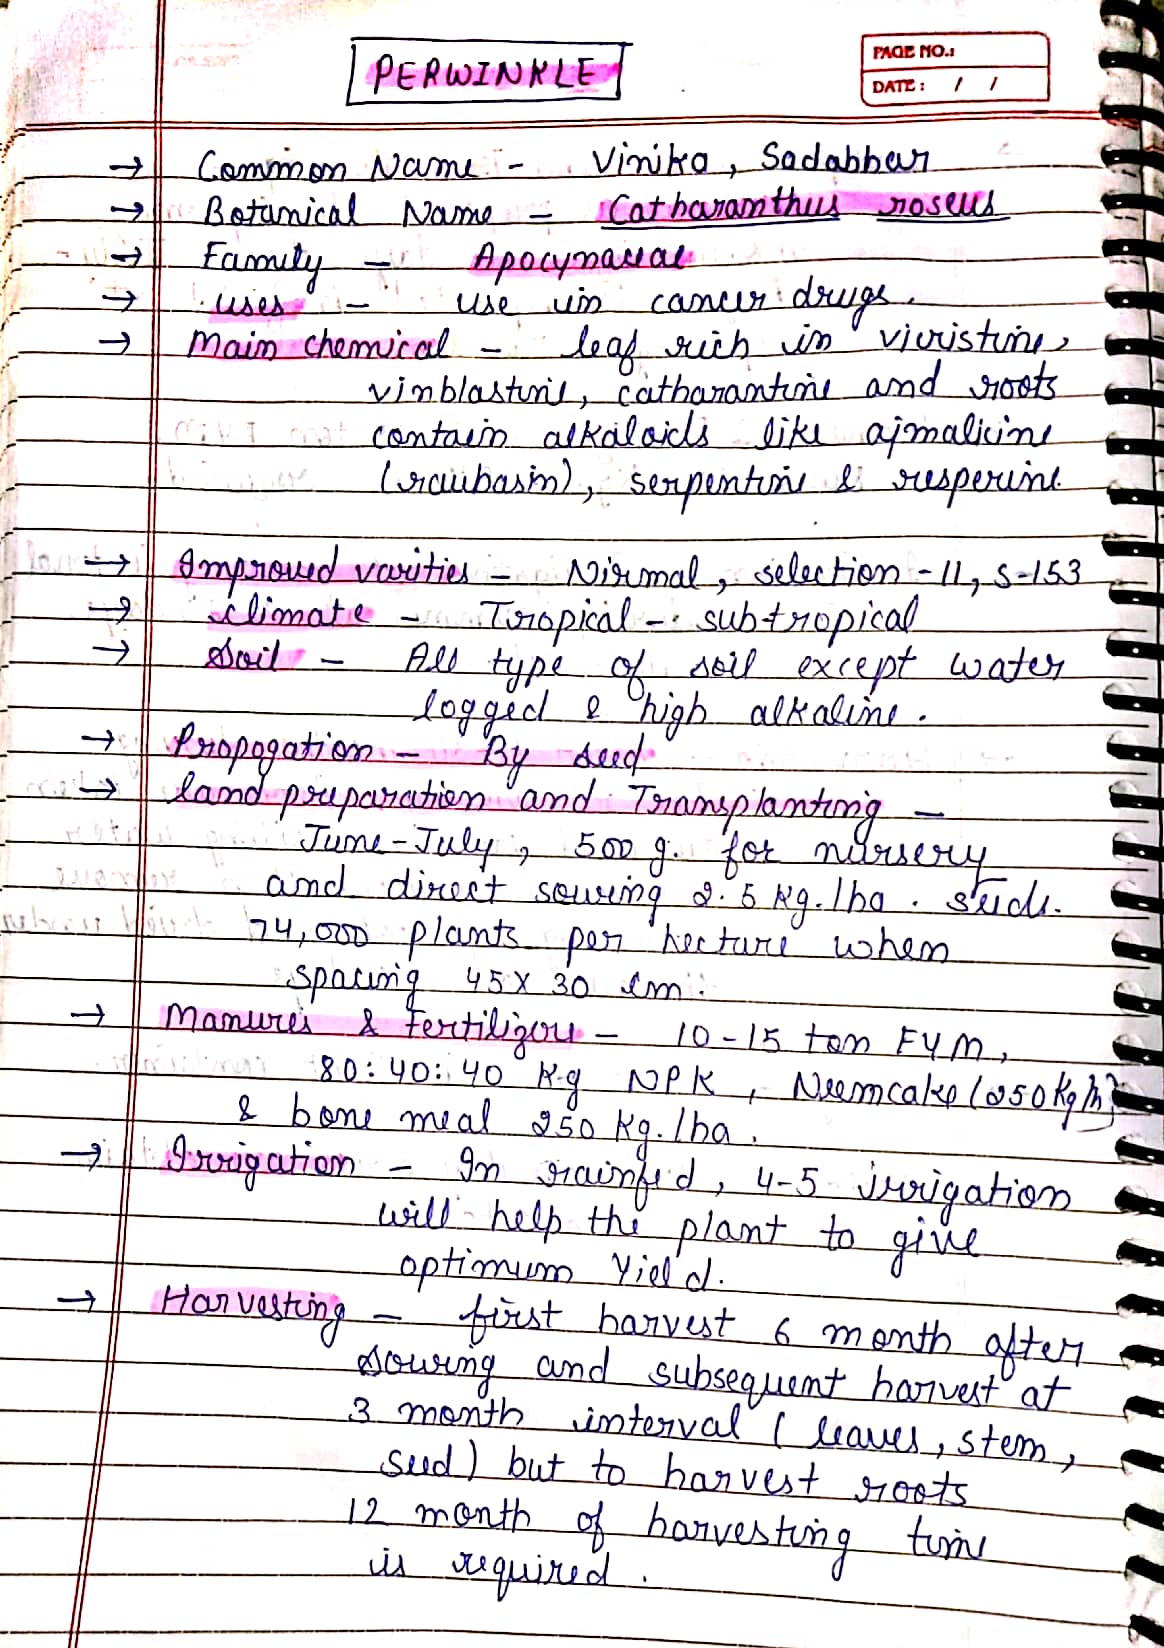 PERWINKLE
PAGE NO.:
DATE : / /
→ Common Name - Vinika, Sadabhar
→ Botanical Name - Catharanthus roseus
→ Family - Apocynaceae
→ uses - use in cancer drugs.
→ Main chemical - leaf rich in vicristine,
vinblastine, catharantine and roots
contain alkaloids like ajmalicine
(raubasin), serpentine & resperine
→ Improved varities - Nirmal, selection -11, S-153
→ climate - Tropical - subtropical
→ Soil - All type of soil except water
logged & high alkaline.
→ Propogation - By seed
→ land preparation and Transplanting -
June-July, 500 g. for nursery
and direct sowing 2.5 kg./ha. seeds.
74,000 plants per hecture when
spacing 45 X 30 cm.
→ Manures & Fertilizers - 10-15 ton FYM,
80:40:40 Kg NPK, Neemcake (250 kg/h)
& bone meal 250 kg./ha.
→ Irrigation - In rainfed, 4-5 irrigation
will help the plant to give
optimum Yield.
→ Harvesting - first harvest 6 month after
sowing and subsequent harvest at
3 month interval (leaves, stem,
seed) but to harvest roots
12 month of harvesting time
is required.